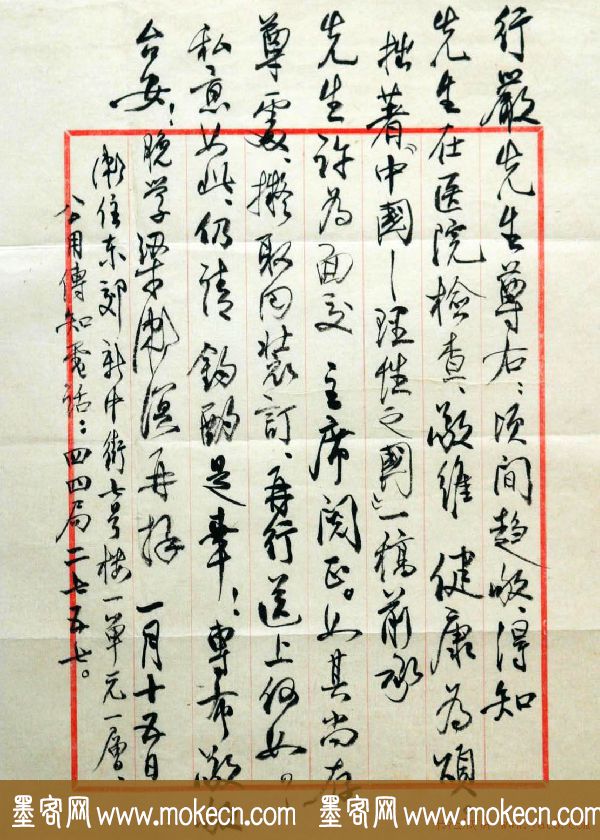 行嚴先生尊右：頃間趨候、得知
先生在医院檢查、敬維 健康為頌
拙著「中國—理性之國」一稿前承
先生許為面交 主席閱正。如其尚在
尊處、擬取回裝訂、再行送上何如。
私意如此、仍請 鈞酌是幸！專布 敬
台安！晚学梁漱溟再拜 一月十五日
漱住东郊新中街七号楼一单元一層、
公用傳知電話：四四局二七五七。
墨客网 www.mokecn.com 墨客网 www.mokecn.com